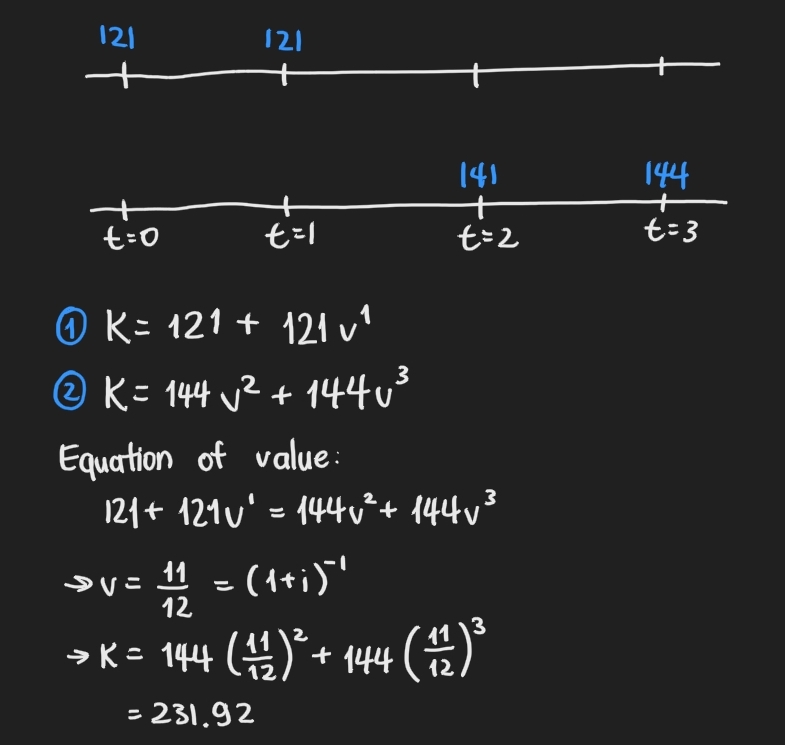 121 121
141 144
t=0 t=1 t=2 t=3
① K = 121 + 121 v¹
② K = 144 v² + 144 v³
Equation of value:
121 + 121v¹ = 144v² + 144v³
→ v = 11/12 = (1+i)⁻¹
→ K = 144 (11/12)² + 144 (11/12)³
= 231.92